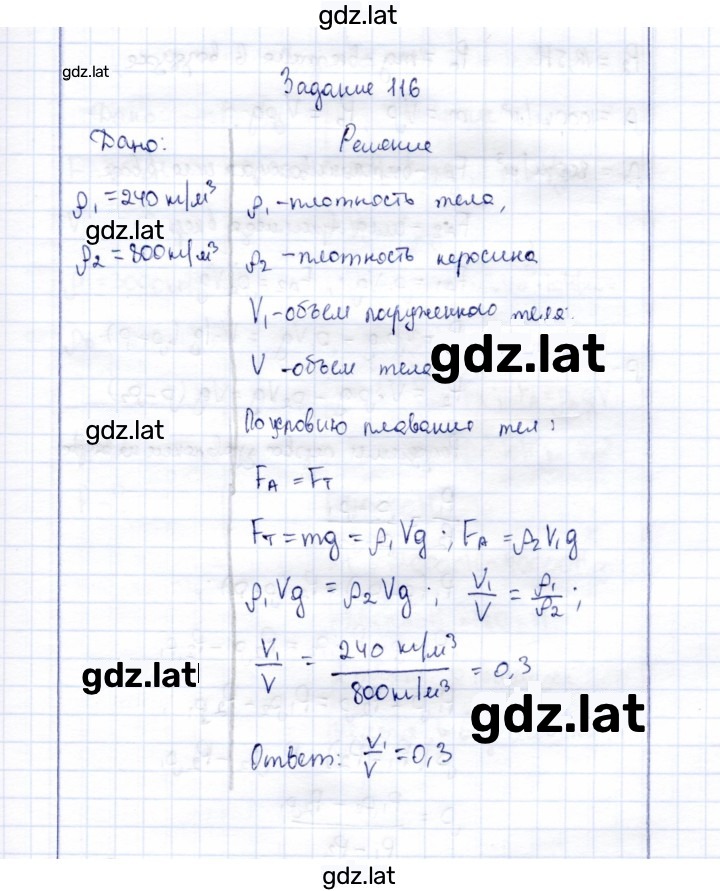 gdz.lat
gdz.lat
Задание 116
Дано:
Решение
ρ₁ = 240 кг/м³
gdz.lat
ρ₂ = 800 кг/м³
ρ₁ - плотность тела,
ρ₂ - плотность керосина
V₁ - объем погруженного тела.
V - объем тела
gdz.lat
gdz.lat
По условию плавания тел:
F_A = F_T
F_T = mg = ρ₁Vg; F_A = ρ₂V₁g
ρ₁Vg = ρ₂Vg; V₁/V = ρ₁/ρ₂;
V₁/V = 240 кг/м³ / 800 кг/м³ = 0,3
gdz.lat
gdz.lat
Ответ: V₁/V = 0,3
gdz.lat